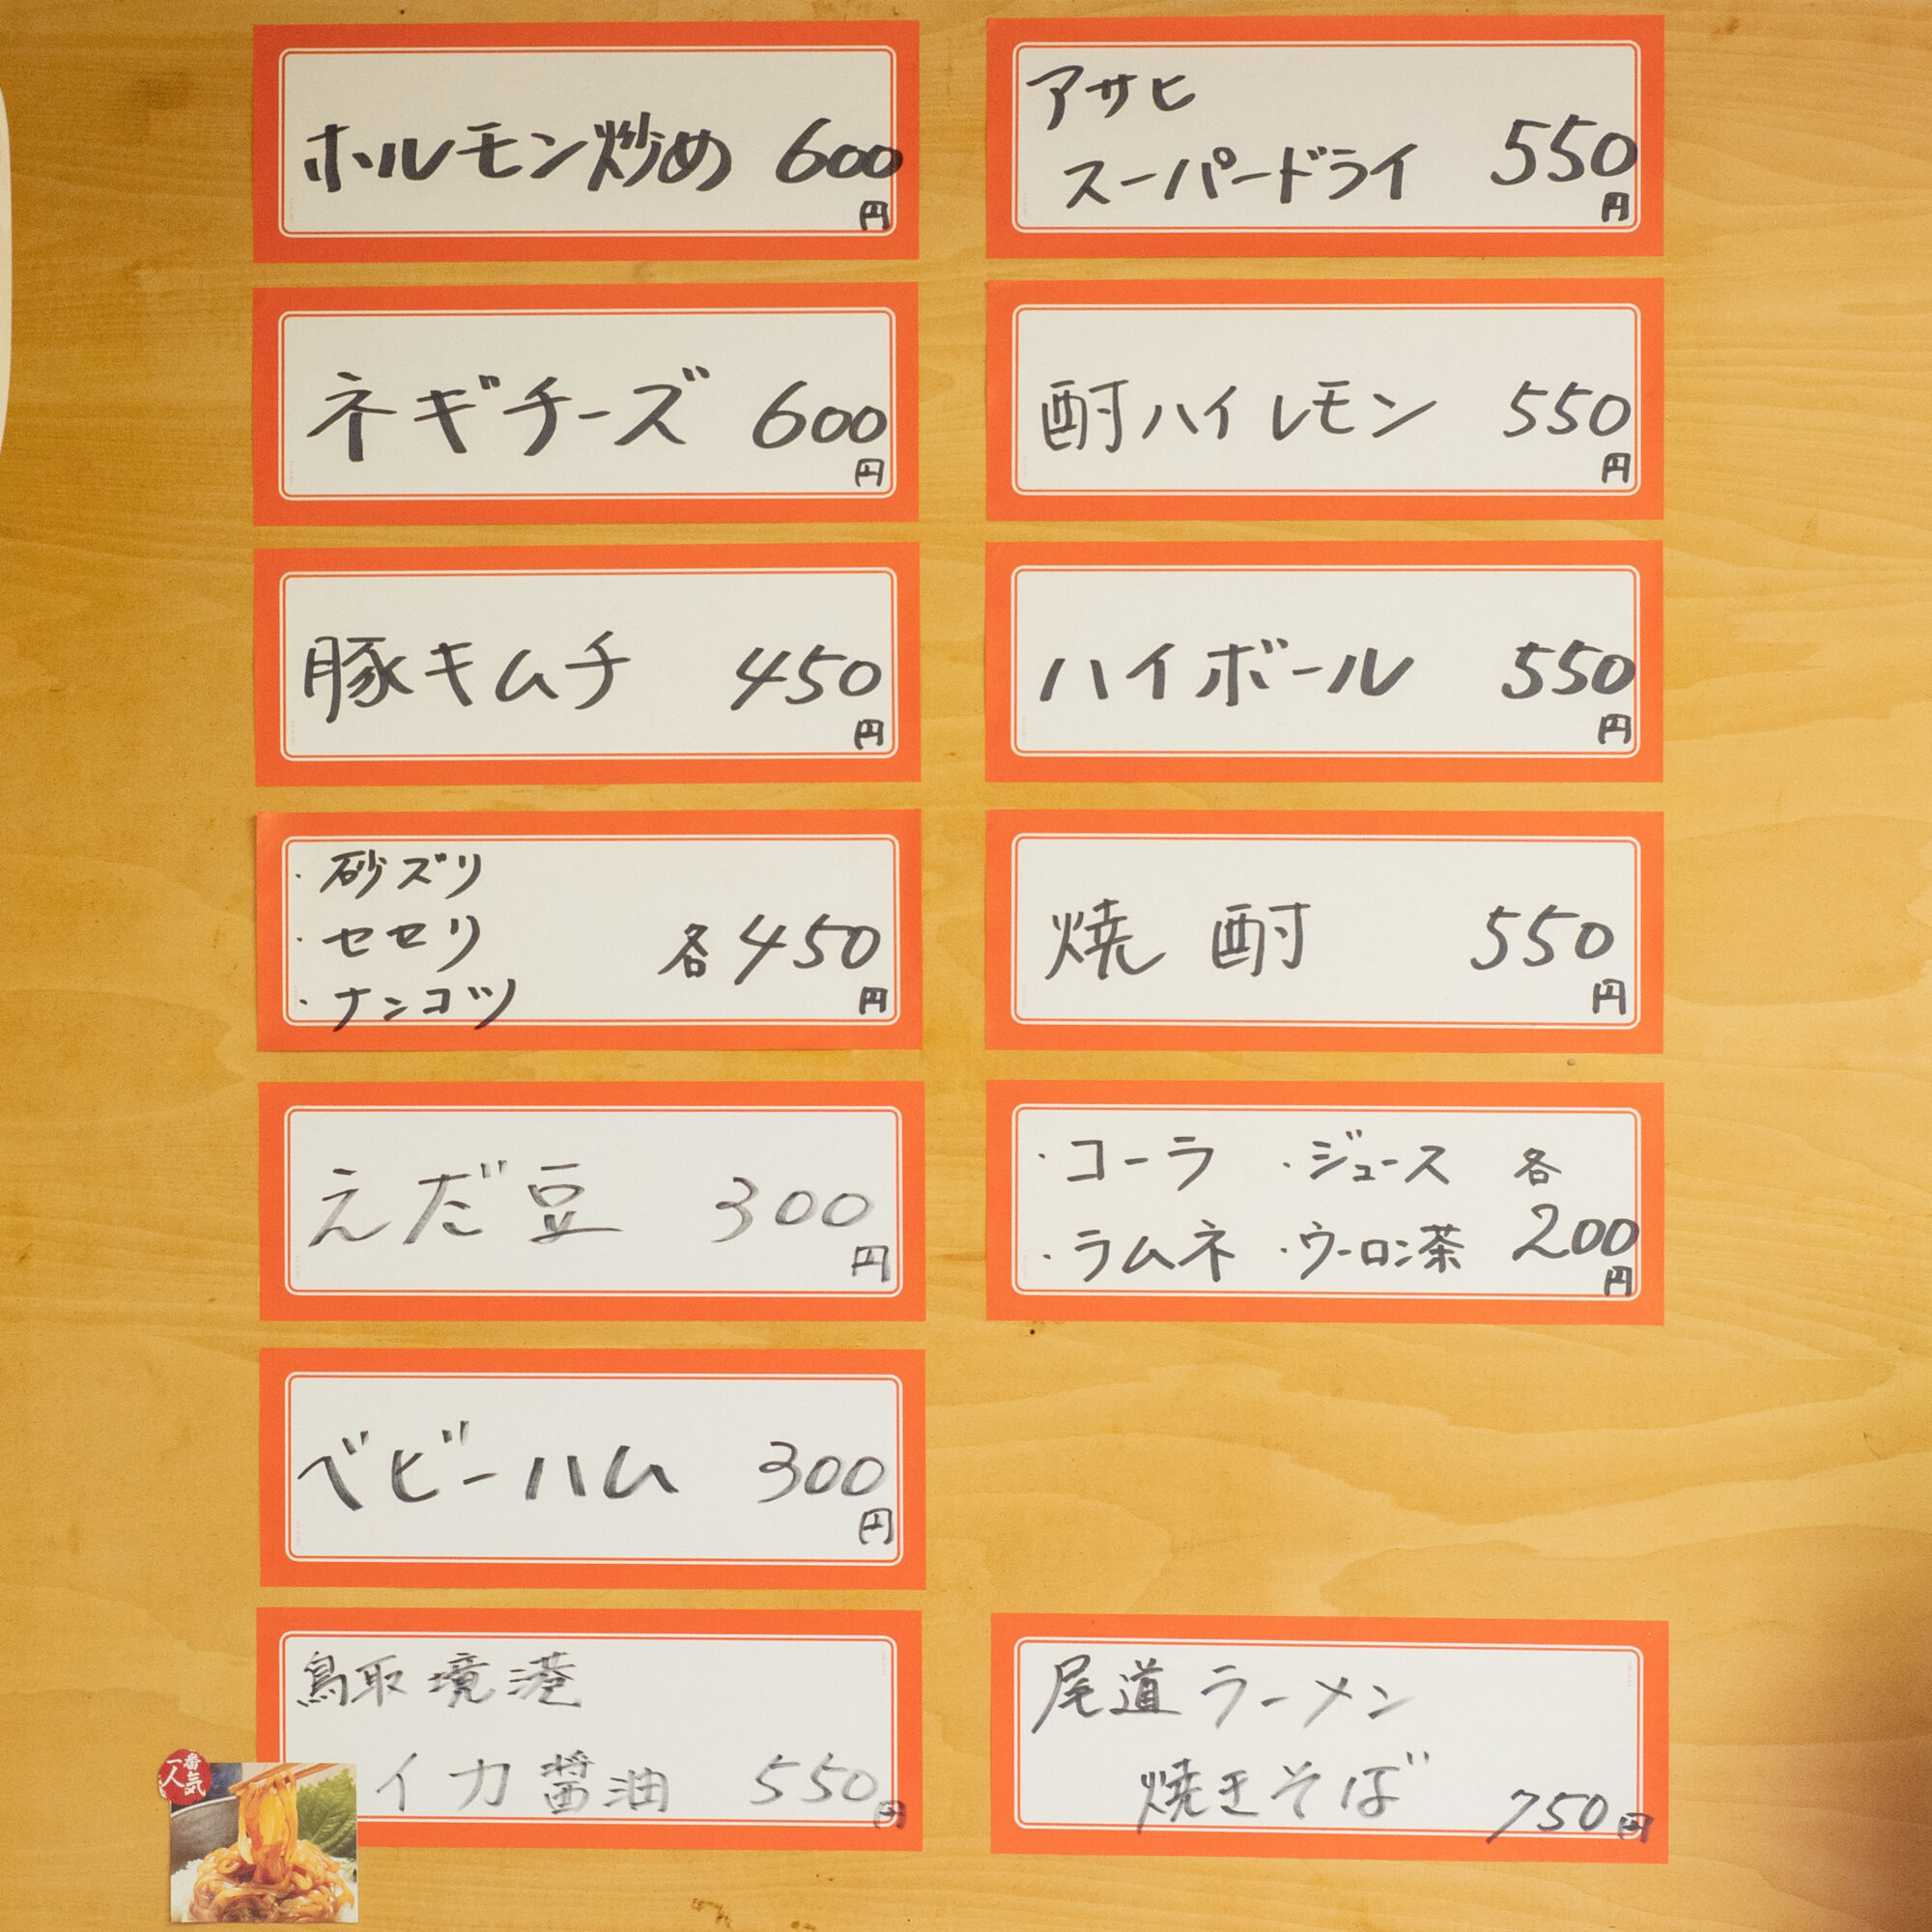 ホルモン炒め 600円
ネギチーズ 600円
豚キムチ 450円
・砂ズリ
・セセリ
・ナンコツ
各450円
えだ豆 300円
ベビーハム 300円
鳥取境港
イカ醤油 550円
一番人気
アサヒ
スーパードライ 550円
酎ハイレモン 550円
ハイボール 550円
焼酎 550円
・コーラ ・ジュース 各
・ラムネ ・ウーロン茶 200円
尾道ラーメン
焼きそば 750円